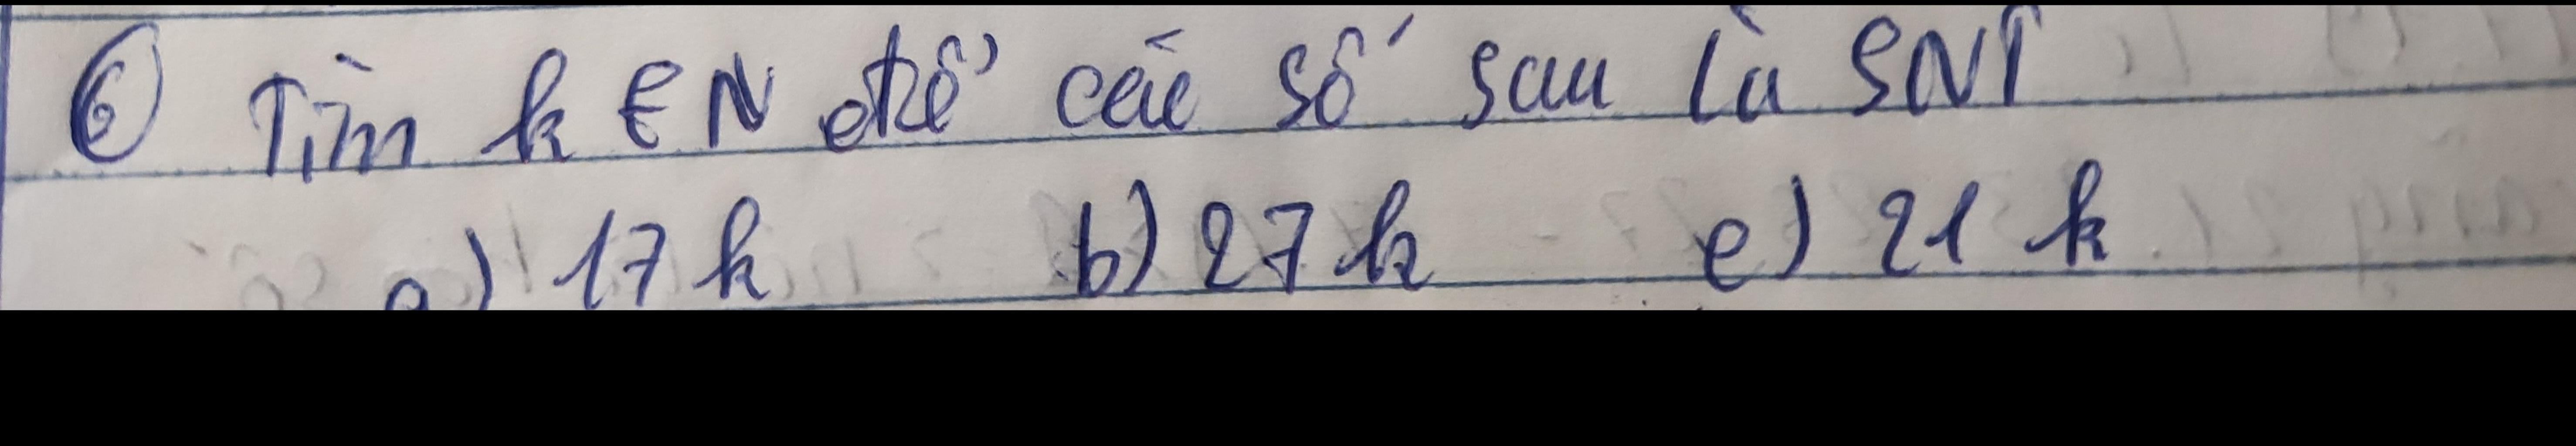 ⑥ Tìm k ∈ N để các số sau là SNT
a) 17k b) 27k c) 21k